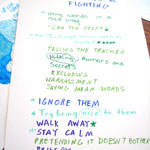 FIGHTING
using words in a
nice way
"CAN YOU STOP"
TELLING THE TEACHER
Hitting, Rumors and
Secrets
EXCLUDING
HARRASMENT
SAYING MEAN WORDS
IGNORE THEM
Try being nice to them
WALK AWAY
STAY CALM
PRETENDING IT DOESN'T BOTHER